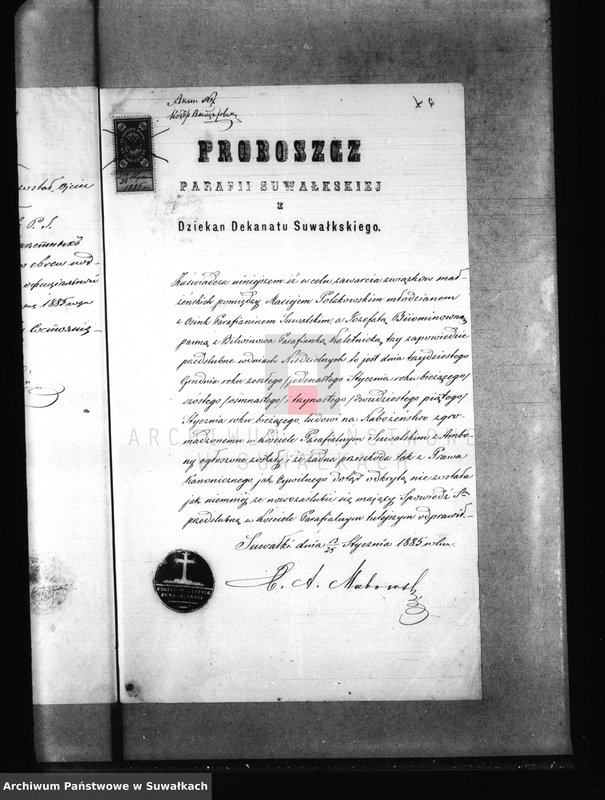 PROBOSZCZ
PARAFII SUWAŁKSKIEJ
I
Dziekan Dekanatu Suwałkskiego.
Zaświadcza niniejszem iż w celu zawarcia związków mał-
żeńskich pomiędzy Maciejem Polakowskim młodzianem
z Osink Parafianinem Suwalskim, a Józefatą
panną z Bitwinowa Parafianką Kaletnicką, trzy zapowiedzie
przedślubne w dniach Niedzielnych to jest dnia trzydziestego
Grudnia roku zeszłego /jedenastego Stycznia roku bieżącego/
szóstego /osiemnastego/ i trzynastego /dwudziestego piątego/
Stycznia roku bieżącego ludowi na Nabożeństwo zgro-
madzonemu w kościele Parafialnym Suwalskim z Ambo-
ny ogłoszone zostały i że żadna przeszkoda tak z Prawa
Kanonicznego jak Cywilnego dotąd odkrytą nie została
jak niemniej że nowozaślubić się mający Spowiedź Stą
przedślubną w kościele Parafialnym tutejszym odprawił.
Suwałki dnia 13/25 Stycznia 1885 roku.
1885 года
ARCHIWUM PAŃSTWOWE
W SUWAŁKACH
Archiwum Państwowe w Suwałkach